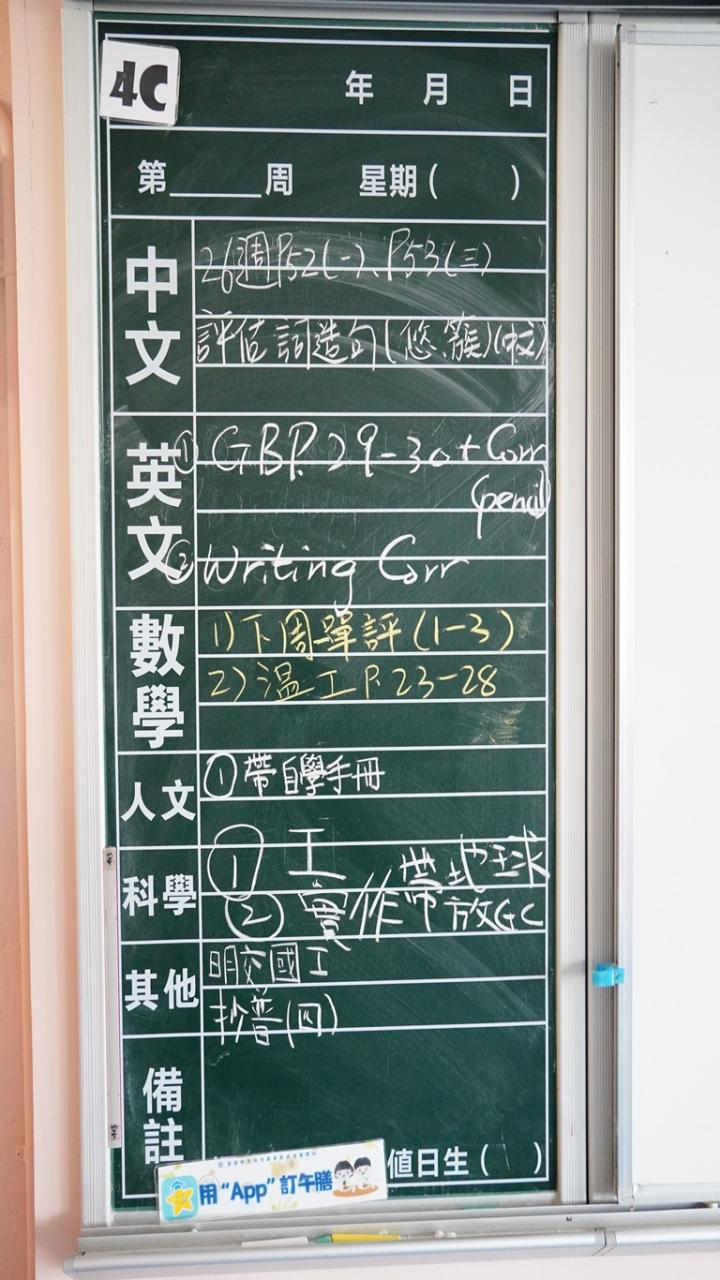 4C
年 月 日
第____周 星期( )
中文
26週P.52(一)、P.53(三)
評估 詞造句(悠、簇)(中文)
英文
① GB P.29-30 + Corr
(pencil)
② Writing Corr
數學
1)下周單評(1-3)
2)溫工P.23-28
人文
①帶自學手冊
科學
① 工
② 實作 帶地球
放GC
其他
明交國工
抄普(四)
備註
值日生( )
用“App”訂午膳